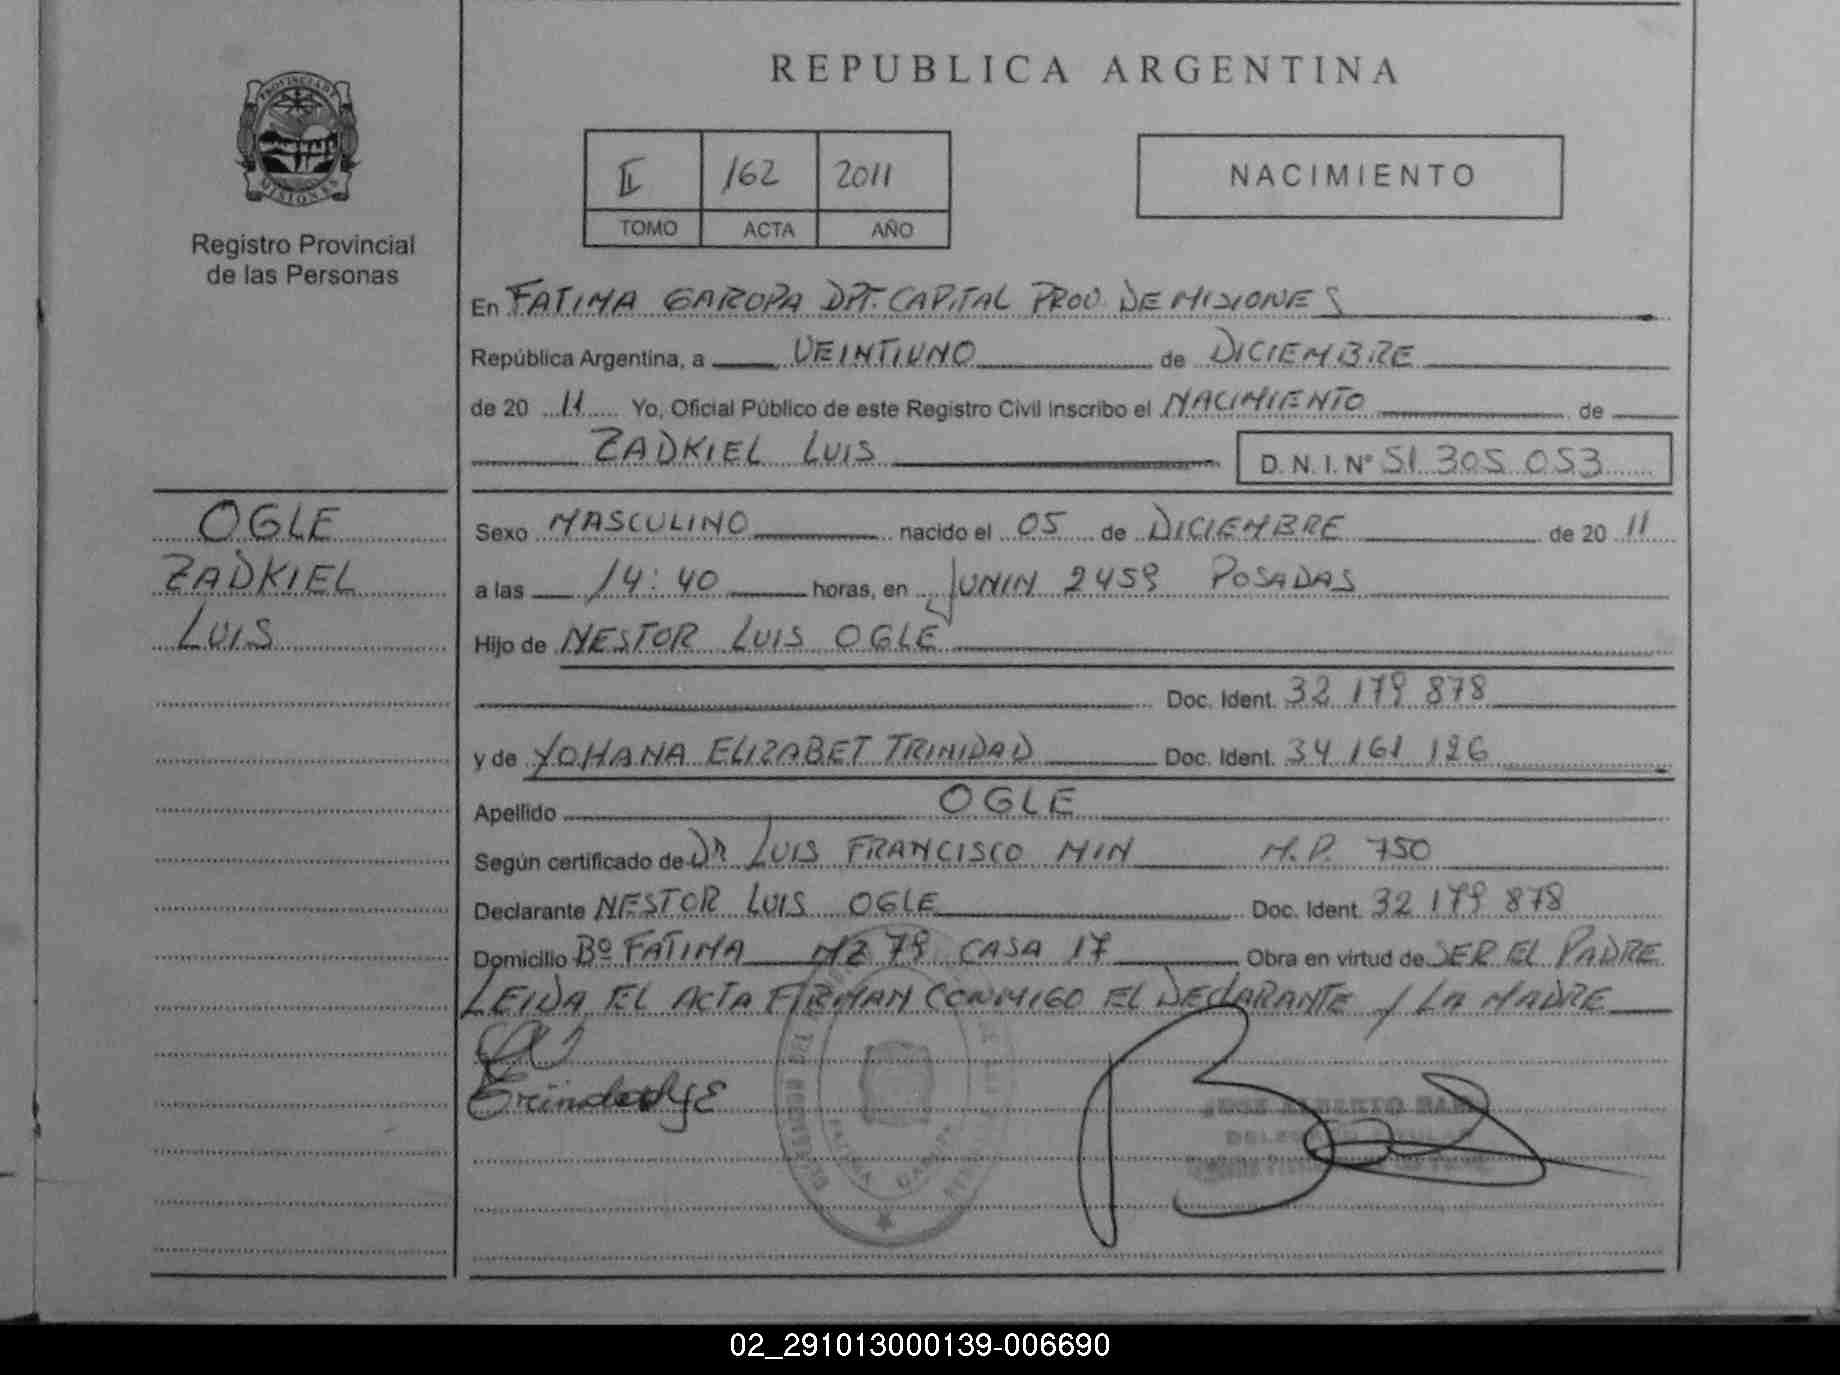 REPUBLICA ARGENTINA
PROVINCIA DE MISIONES
Registro Provincial
de las Personas
II 162 2011
TOMO ACTA AÑO
NACIMIENTO
En FATIMA GAROPA DPT. CAPITAL PROV. DE MISIONES
República Argentina, a VEINTIUNO de DICIEMBRE
de 20 11 Yo, Oficial Público de este Registro Civil Inscribo el NACIMIENTO de
ZADKIEL LUIS D.N.I. Nº 51 305 053
OGLE
ZADKIEL
LUIS
Sexo MASCULINO nacido el 05 de DICIEMBRE de 20 11
a las 14:40 horas, en JUNIN 2459 POSADAS
Hijo de NESTOR LUIS OGLE
Doc. Ident. 32 179 878
y de YOHANA ELIZABET TRINIDAD Doc. Ident. 34 161 126
Apellido OGLE
Según certificado de Dr LUIS FRANCISCO MIN M.P. 750
Declarante NESTOR LUIS OGLE Doc. Ident. 32 179 878
Domicilio Bº FATIMA MZ 79 CASA 17 Obra en virtud de SER EL PADRE
LEIDA EL ACTA FIRMAN CONMIGO EL DECLARANTE / LA MADRE
FATIMA GAROPA
02_291013000139-006690